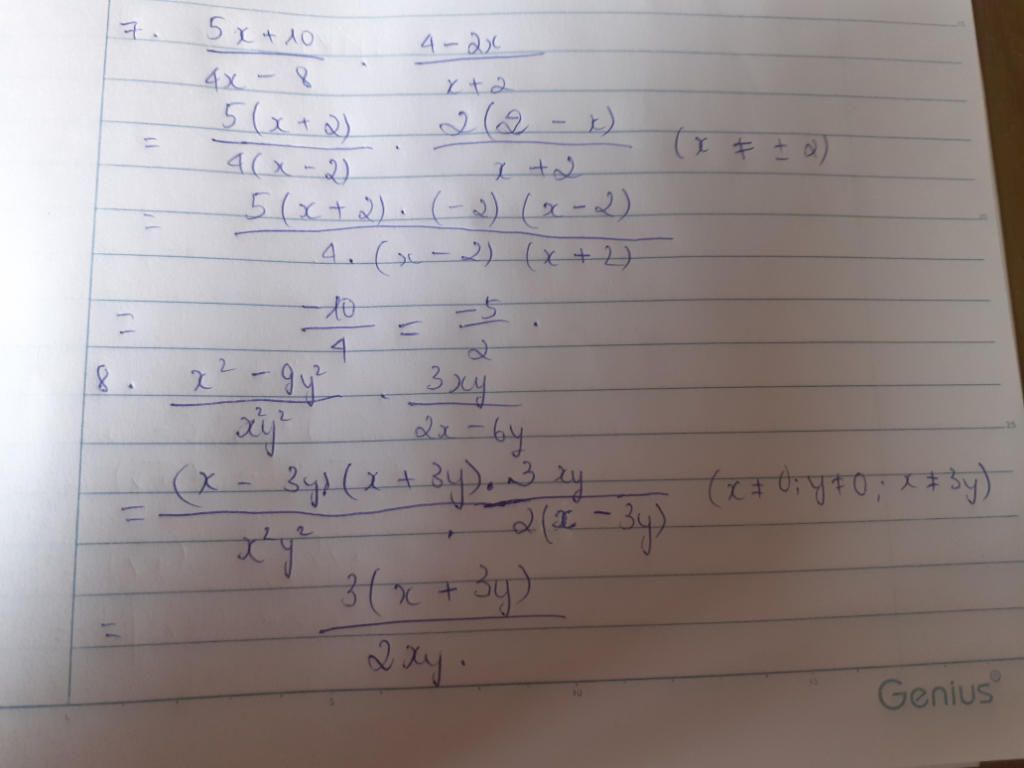 7. (5x + 10)/(4x - 8) . (4 - 2x)/(x + 2)
= 5(x + 2)/4(x - 2) . 2(2 - x)/(x + 2) (x ≠ ± 2)
= 5(x + 2) . (-2)(x - 2)/4. (x - 2)(x + 2)
= -10/4 = -5/2 .
8. (x² - 9y²)/(x²y²) . 3xy/(2x - 6y)
= (x - 3y)(x + 3y) . 3xy/x²y² . 2(x - 3y) (x ≠ 0; y ≠ 0; x ≠ 3y)
= 3(x + 3y)/2xy.
Genius